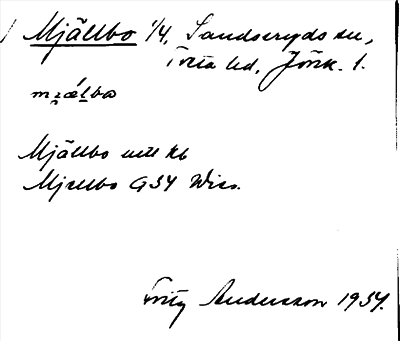 Mjällbo 1/4, Sandseryds sn,
Tveta hd, Jönk. l.
mjælbo
Mjällbo utt kb
Mjällbo GSK Wiss.
Fritz Andersson 1934.